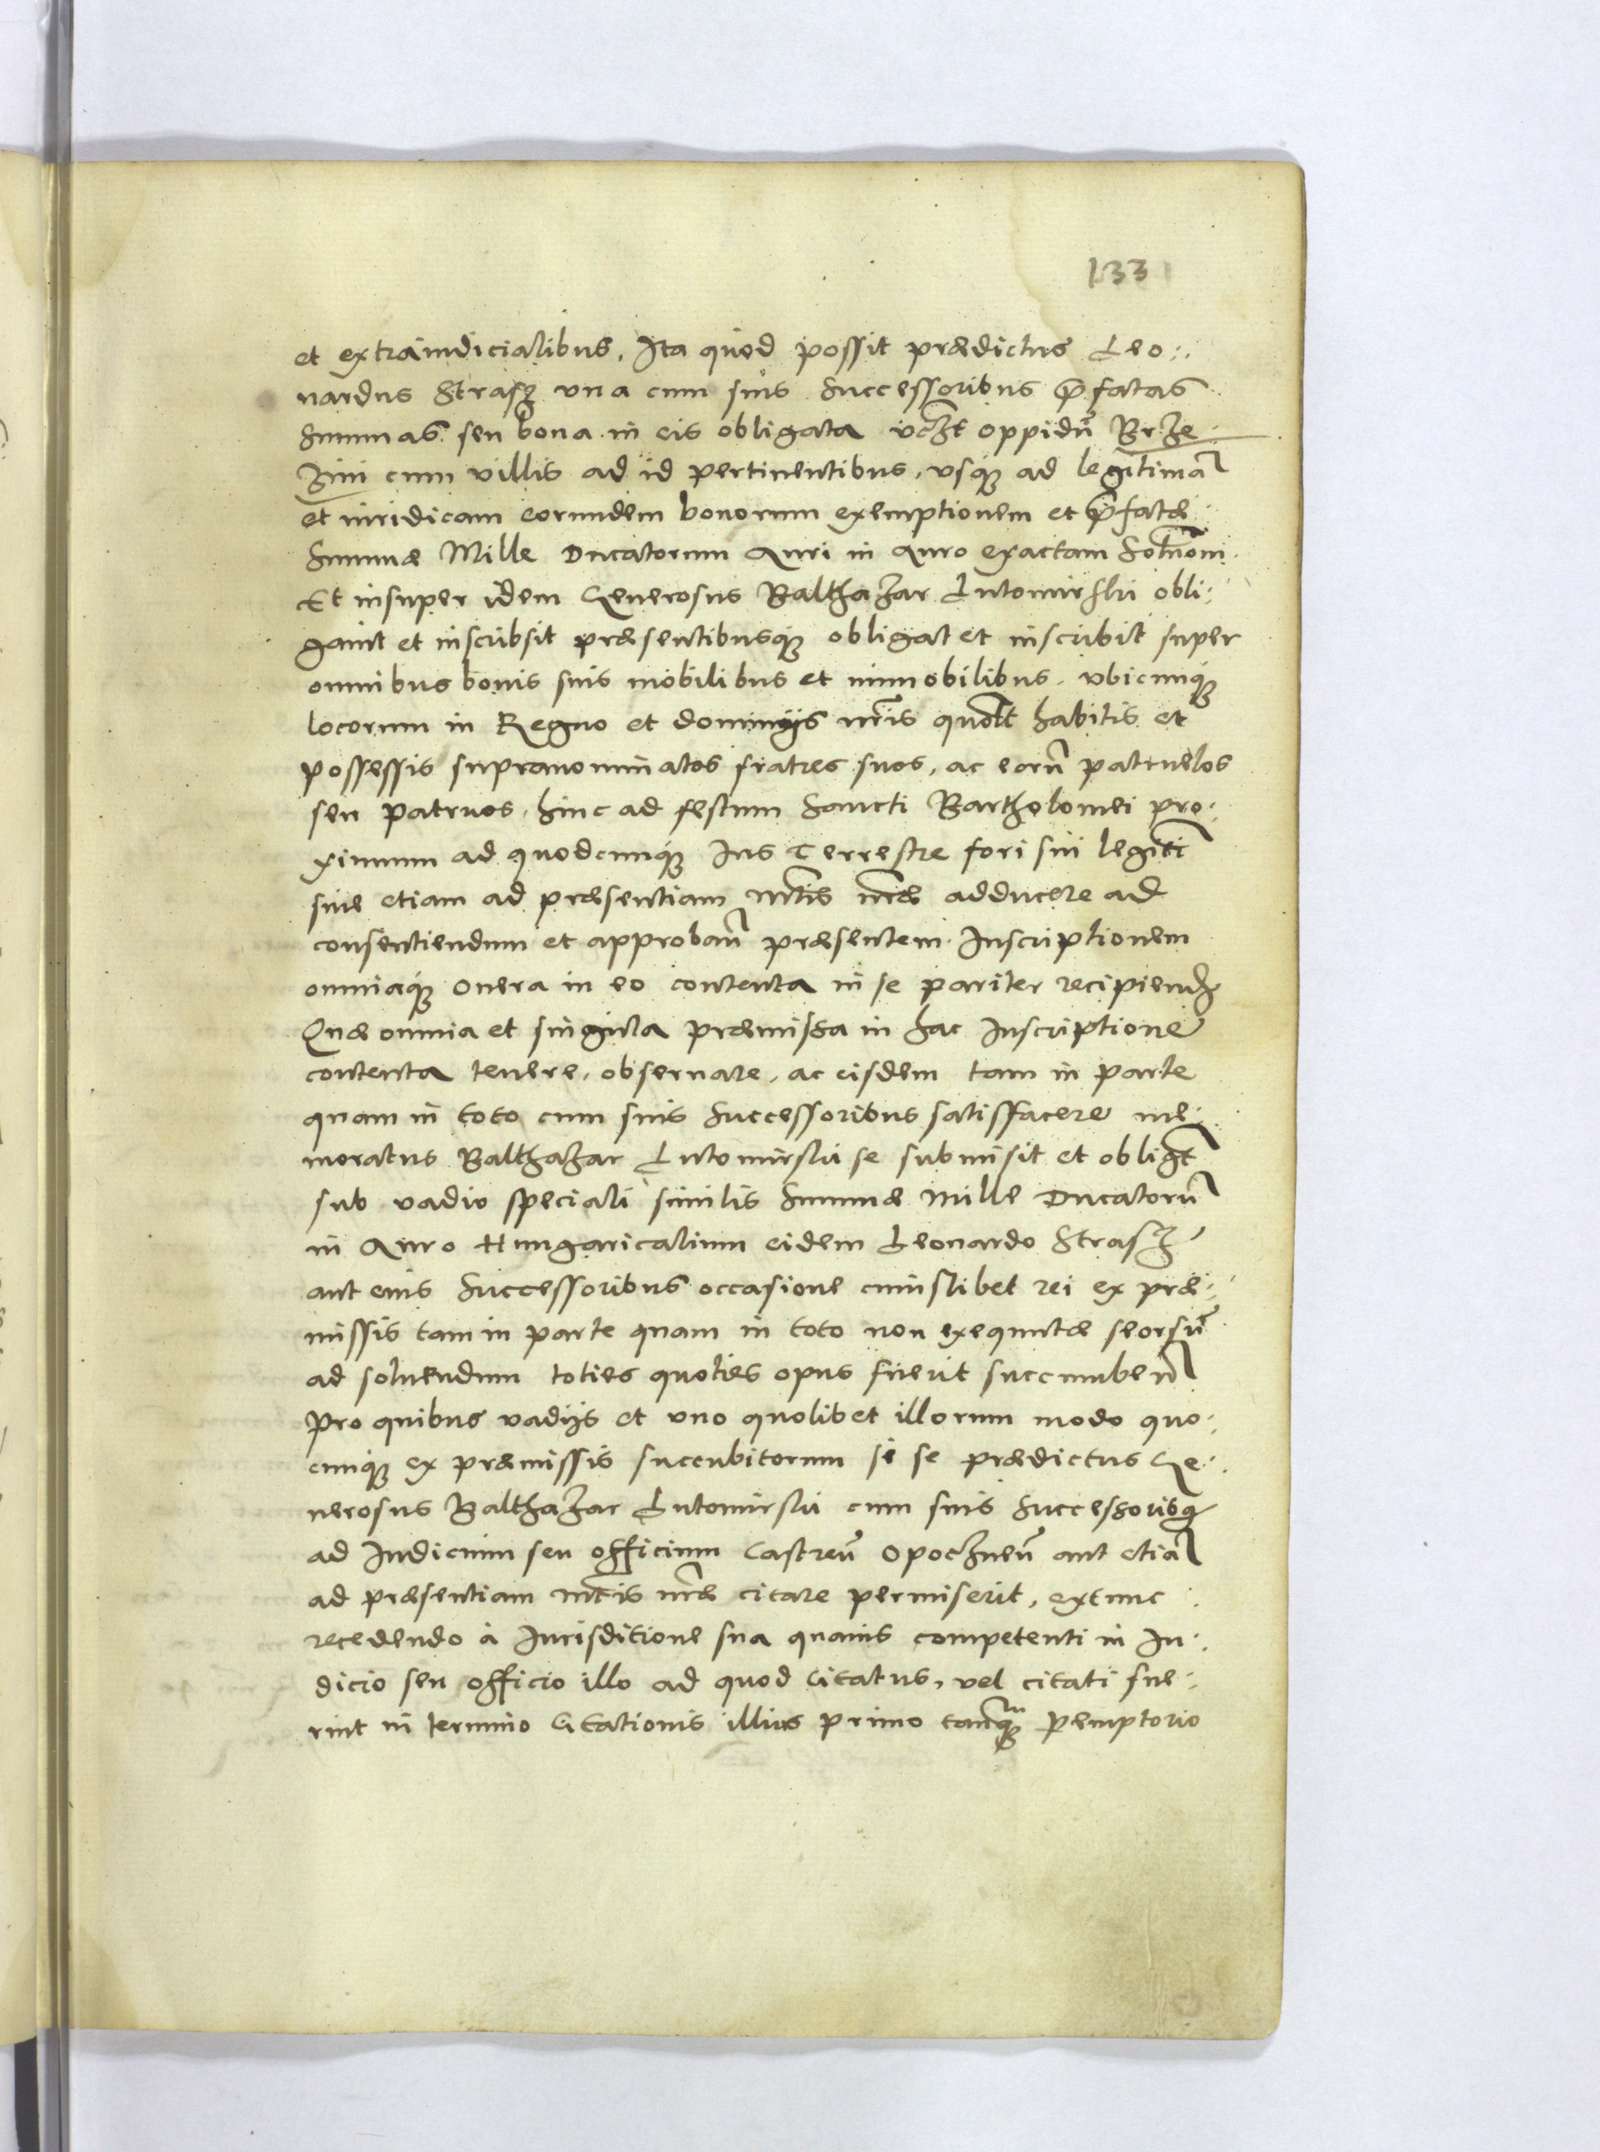 133
et extraiudicialibus. Ita quod possit prædictus Leo:
nardus Strasz vna cum suis Successoribus p̄fatas
Summas seu bona in eis obligata vczt oppidū Brze
zini cum villis ad id pertinentibus, vsq̨ ad legitimā
et iuridicam eorundem bonorum exemptionem et p̄fatæ
Summæ Mille Ducatorum Auri in Auro exactam Solutōni.
Et insuper idem Generosus Balthazar Lutomirski obli:
gauit et inscribsit præsentibusq̨ obligat et inscribit super
omnibus bonis suis mobilibus et immobilibus. vbicunq̨
locorum in Regno et dominijs nr̄is quolt habitis et
possessis supranominatos fratres suos, ac eorū patruelos
seu Patruos, hinc ad festum Sancti Bartholomei pro:
ximum ad quodcunq̨ Ius Terrestre fori sui legiti
siue etiam ad præsentiam Mtis nr̄æ adducere ad
consentiendum et approbanᷠ præsentem Inscriptionem
omniaq̨ onera in eo contenta in se pariter recipiendᷠ
Quæ omnia et singula præmissa in hac Inscriptione
contenta tenere, obseruare, ac eisdem tam in parte
quam in toto cum suis Successoribus satisfacere me:
moratus Balthazar Lutomirski se submisit et obligt
sub vadio speciali similis Summæ Mille Ducatorū
in Auro Hungaricalium eidem Leonardo Strasz
aut eius Successoribus occasione cuiuslibet rei ex præ:
missis tam in parte quam in toto non exequutæ seorsū
ad soluendum toties quoties opus fuerit succumbenᷠ
Pro quibus vadijs et vno quolibet illorum modo quo:
cunq̨ ex præmissis succubitorum si se prædictus Ge:
nerosus Balthazar Lutomirski cum suis Successoribq̨
ad Iudicium seu officium Castreñ Opoczneñ aut etiā
ad præsentiam Mtis nr̄æ citare permiserit, extunc
recedendo à Iurisditione sua quauis competenti in Iu:
dicio seu officio illo ad quod Citatus, vel citati fue:
rint in termino Citationis illius primo tamq̨ᵐ p̱emptorio